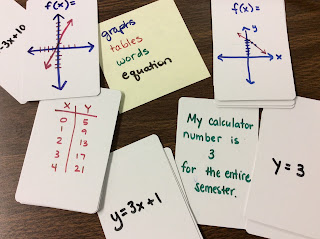 -3x+10
f(x)=
graphs
tables
words
equation
f(x)=
y
x
X Y
0 5
1 9
2 13
3 17
4 21
My calculator
number is
3
for the entire
semester.
y=3x+1
y=3